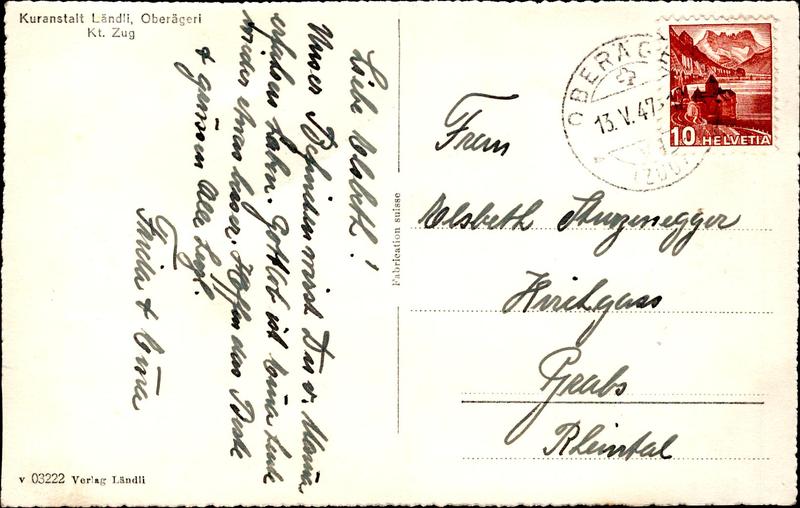 Kuranstalt Ländli, Oberägeri
Kt. Zug
Liebe Elsbeth!
Unser Befinden wirst Du v. Mama
erfahren haben. Gottlob ist Emma heute
wieder etwas besser. Hoffen das Beste
& grüssen alle herzl.
Frieda & Emma
v 03222 Verlag Ländli
Fabrication suisse
OBERÄGERI
13.V.47
(ZUG)
10 HELVETIA
Frau
Elsbeth Sturzenegger
Kirchgass
Grabs
Rheintal